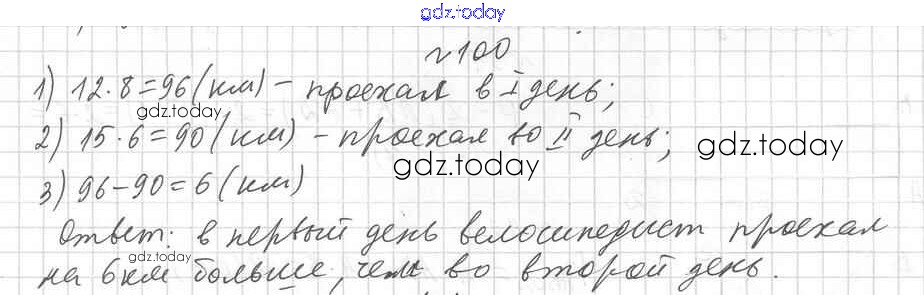 gdz.today
№100
1) 12·8=96(км) – проехал в I день;
gdz.today
2) 15·6=90(км) – проехал во II день;
gdz.today
gdz.today
3) 96-90=6(км)
Ответ: в первый день велосипедист проехал
gdz.today
на 6км больше, чем во второй день.